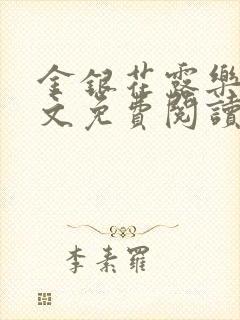 金銀花露樂
文免費閱讀
李素羅